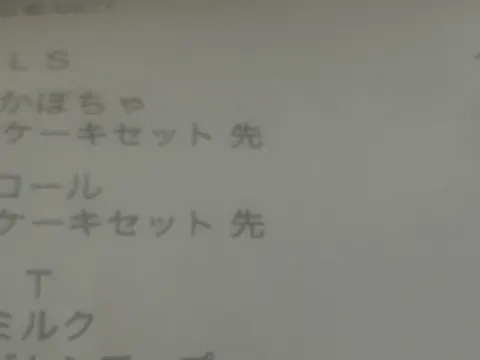 LS
かぼちゃ
ケーキセット 先
コール
ケーキセット 先
T
ミルク